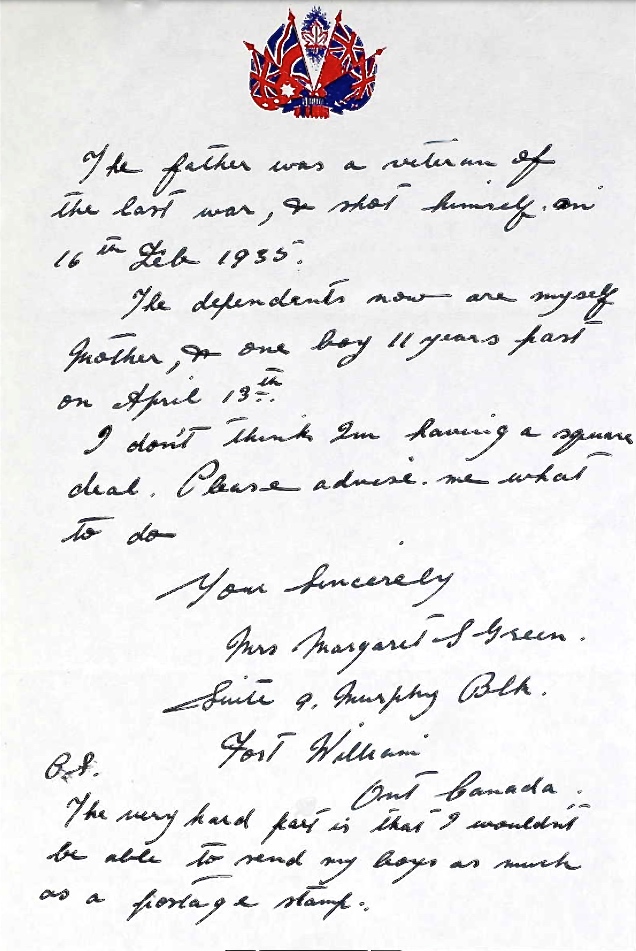 The father was a veteran of
the last war, & shot himself. on
16th Feb 1935.
The dependents now are myself
Mother, & one boy 11 years past
on April 13th.
I don't think Im having a square
deal. Please advise. me what
to do
Your Sincerely
Mrs Margaret S Green.
Suite 9. Murphy Blk.
Fort William
Ont Canada.
P.S.
The very hard part is that I wouldn't
be able to send my boys as much
as a postage stamp.